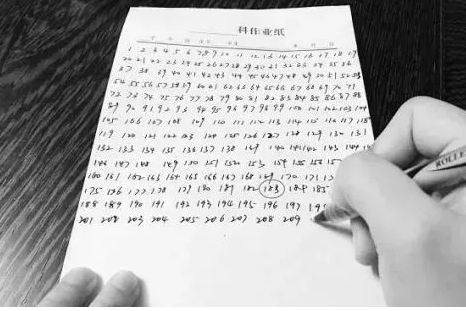 科作业纸
1 2 3 4 5 6 7 8 9 10 11 12 13 14 15 16 17 18 19
20 21 22 23 24 25 26 27 28 29 30 31 32 33 34 35 36
37 38 39 40 41 42 43 44 45 46 47 48 49 50 51 52 53
54 55 56 57 58 59 60 61 62 63 64 65 66 67 68 69 70 71
72 73 74 75 76 77 78 79 80 81 82 83 84 85 86 87 88
89 90 91 92 93 94 95 96 97 98 99 100 101 102 103 104
105 106 107 108 109 110 111 112 113 114 115 116 117 118
119 120 121 122 123 124 125 126 127 128 129 130 131
132 133 134 135 136 137 138 139 140 141 142 143 144
146 147 148 149 150 151 152 153 154 155 156
160 161 162 163 164 165 166 167 168 169 170 171
175 176 177 178 179 180 181 182 183 184 185
188 189 190 191 192 193 194 195 196 197
201 202 203 204 205 206 207 208 209
ROLLE